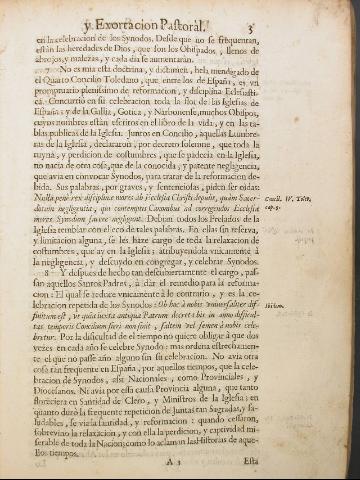 y Exortacion Pastoral. 3
en la celebracion de los Synodos. Desde que no se frequentan,
están las heredades de Dios, que son los Obispados, llenos de
abrojos, y malezas, y cada dia se aumentarán.
7 No es mia esta doctrina, y dictamen, hela mendigado de
el Quarto Concilio Toledano, que entre los de España, es vn
promptuario plenissimo de reformacion, y disciplina Eclesiasti-
ca. Concurriò en su celebracion toda la flor de las Iglesias de
España: y de la Gallia, Gotica, y Narbonense, muchos Obispos,
cuyos nombres están escritos en el libro de la vida, y en las ta-
blas publicas de la Iglesia. Juntos en Concilio, aquellas Lumbre-
ras de la Iglesia, declararon, por decreto solemne, que toda la
ruyna, y perdicion de costumbres, que se padecia en la Iglesia,
no nacia de otra cosa, que de la conocida, y patente negligencia,
que avia en convocar Synodos, para tratar de la reformacion de-
bida. Sus palabras, por graves, y sentenciosas, piden ser oidas:
Nulla penè res disciplinæ mores ab Ecclesia Christi depulit, quàm Sacer-
dotum negligentia, qui contemptis Canonibus ad corrigendos Ecclesiæ
mores Synodum facere negligunt. Debian todos los Prelados de la
Iglesia temblar con el eco de tales palabras. En ellas sin reserva,
y limitacion alguna, se les haze cargo de toda la relaxacion de
costumbres, que ay en la Iglesia; atribuyendola vnicamente à
la negligencia, y descuydo en congregar, y celebrar Synodos.
8 Y despues de hecho tan descubiertamente el cargo, pas-
san aquellos Santos Padres, à dàr el remedio para la reforma-
cion: El qual se reduce vnicamente à lo contrario, y es la ce-
lebracion repetida de los Synodos: Ob hoc à nobis vniversaliter dif-
finitum est, vt quia iuxta antiqua Patrum decreta bis in anno difficul-
tas temporis Concilium fieri non sinit, saltem vel semel à nobis cele-
bretur. Por la dificultad de el tiempo no quiere obligar à que dos
vezes en cada año se celebre Synodo: mas ordena estrechamen-
te el que no passe año alguno sin su celebracion. No avia otra
cosa tan frequente en España, por aquellos tiempos, que la cele-
bracion de Synodos, assi Nacionales, como Provinciales, y
Diocesanos. Ni avia por essa causa Provincia alguna, que tanto
floreciera en Santidad de Clero, y Ministros de la Iglesia: en
quanto durò la frequente repeticion de Juntas tan Sagradas, y sa-
ludables, se via la santidad, y reformacion: quando cessaron,
sobrevino la relaxacion, y con ella la perdicion, y captividad mi-
serable de toda la Nacion; como lo aclaman las Historias de aque-
llos tiempos.
Concil. IV. Tolet.
cap. 3.
Ibidem.
A 2 Esta